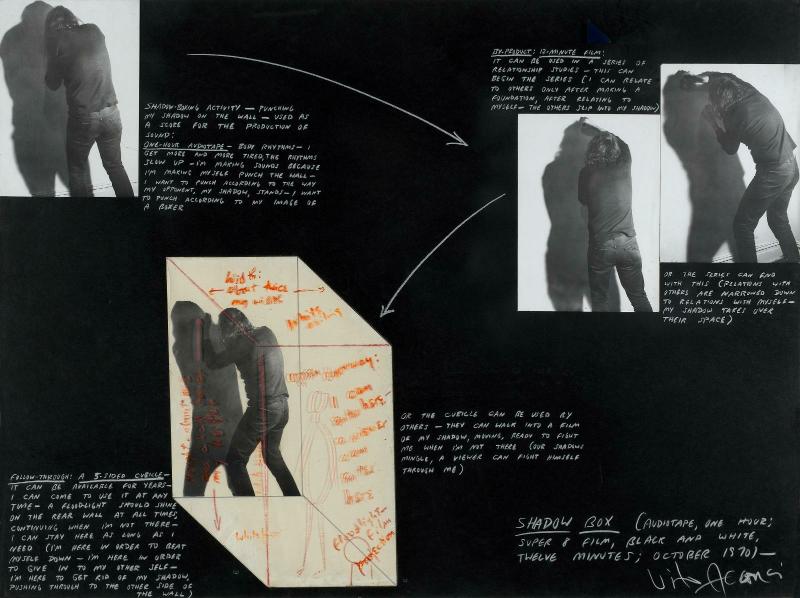 SHADOW-BOXING ACTIVITY — PUNCHING
MY SHADOW ON THE WALL — USED AS
A SCORE FOR THE PRODUCTION OF
SOUND:
ONE-HOUR AUDIOTAPE — BODY RHYTHMS — I
GET MORE AND MORE TIRED, THE RHYTHMS
SLOW UP — I'M MAKING SOUNDS BECAUSE
I'M MAKING MYSELF PUNCH THE WALL —
I WANT TO PUNCH ACCORDING TO THE WAY
MY OPPONENT, MY SHADOW, STANDS — I WANT
TO PUNCH ACCORDING TO MY IMAGE OF
A BOXER
BY-PRODUCT: 12-MINUTE FILM:
IT CAN BE USED IN A SERIES OF
RELATIONSHIP STUDIES — THIS CAN
BEGIN THE SERIES (I CAN RELATE
TO OTHERS ONLY AFTER MAKING A
FOUNDATION, AFTER RELATING TO
MYSELF — THE OTHERS SLIP INTO MY SHADOW)
OR THE SERIES CAN END
WITH THIS (RELATIONS WITH
OTHERS ARE NARROWED DOWN
TO RELATIONS WITH MYSELF —
MY SHADOW TAKES OVER
THEIR SPACE)
width:
about twice
my width
White
ceiling
open doorway:
I can
enter here —
a viewer
can
enter
here
Floodlight —
Film
projection
OR THE CUBICLE CAN BE USED BY
OTHERS — THEY CAN WALK INTO A FILM
OF MY SHADOW, MOVING, READY TO FIGHT
ME WHEN I'M NOT THERE (OUR SHADOWS
MINGLE, A VIEWER CAN FIGHT HIMSELF
THROUGH ME)
FOLLOW-THROUGH: A 3-SIDED CUBICLE —
IT CAN BE AVAILABLE FOR YEARS —
I CAN COME TO USE IT AT ANY
TIME — A FLOODLIGHT SHOULD SHINE
ON THE REAR WALL AT ALL TIMES,
CONTINUING WHEN I'M NOT THERE —
I CAN STAY HERE AS LONG AS I
NEED (I'M HERE IN ORDER TO BEAT
MYSELF DOWN — I'M HERE IN ORDER
TO GIVE IN TO MY OTHER SELF —
I'M HERE TO GET RID OF MY SHADOW,
PUSHING THROUGH TO THE OTHER SIDE OF
THE WALL)
SHADOW BOX (AUDIOTAPE, ONE HOUR;
SUPER 8 FILM, BLACK AND WHITE,
TWELVE MINUTES; OCTOBER 1970) —
Vito Acconci